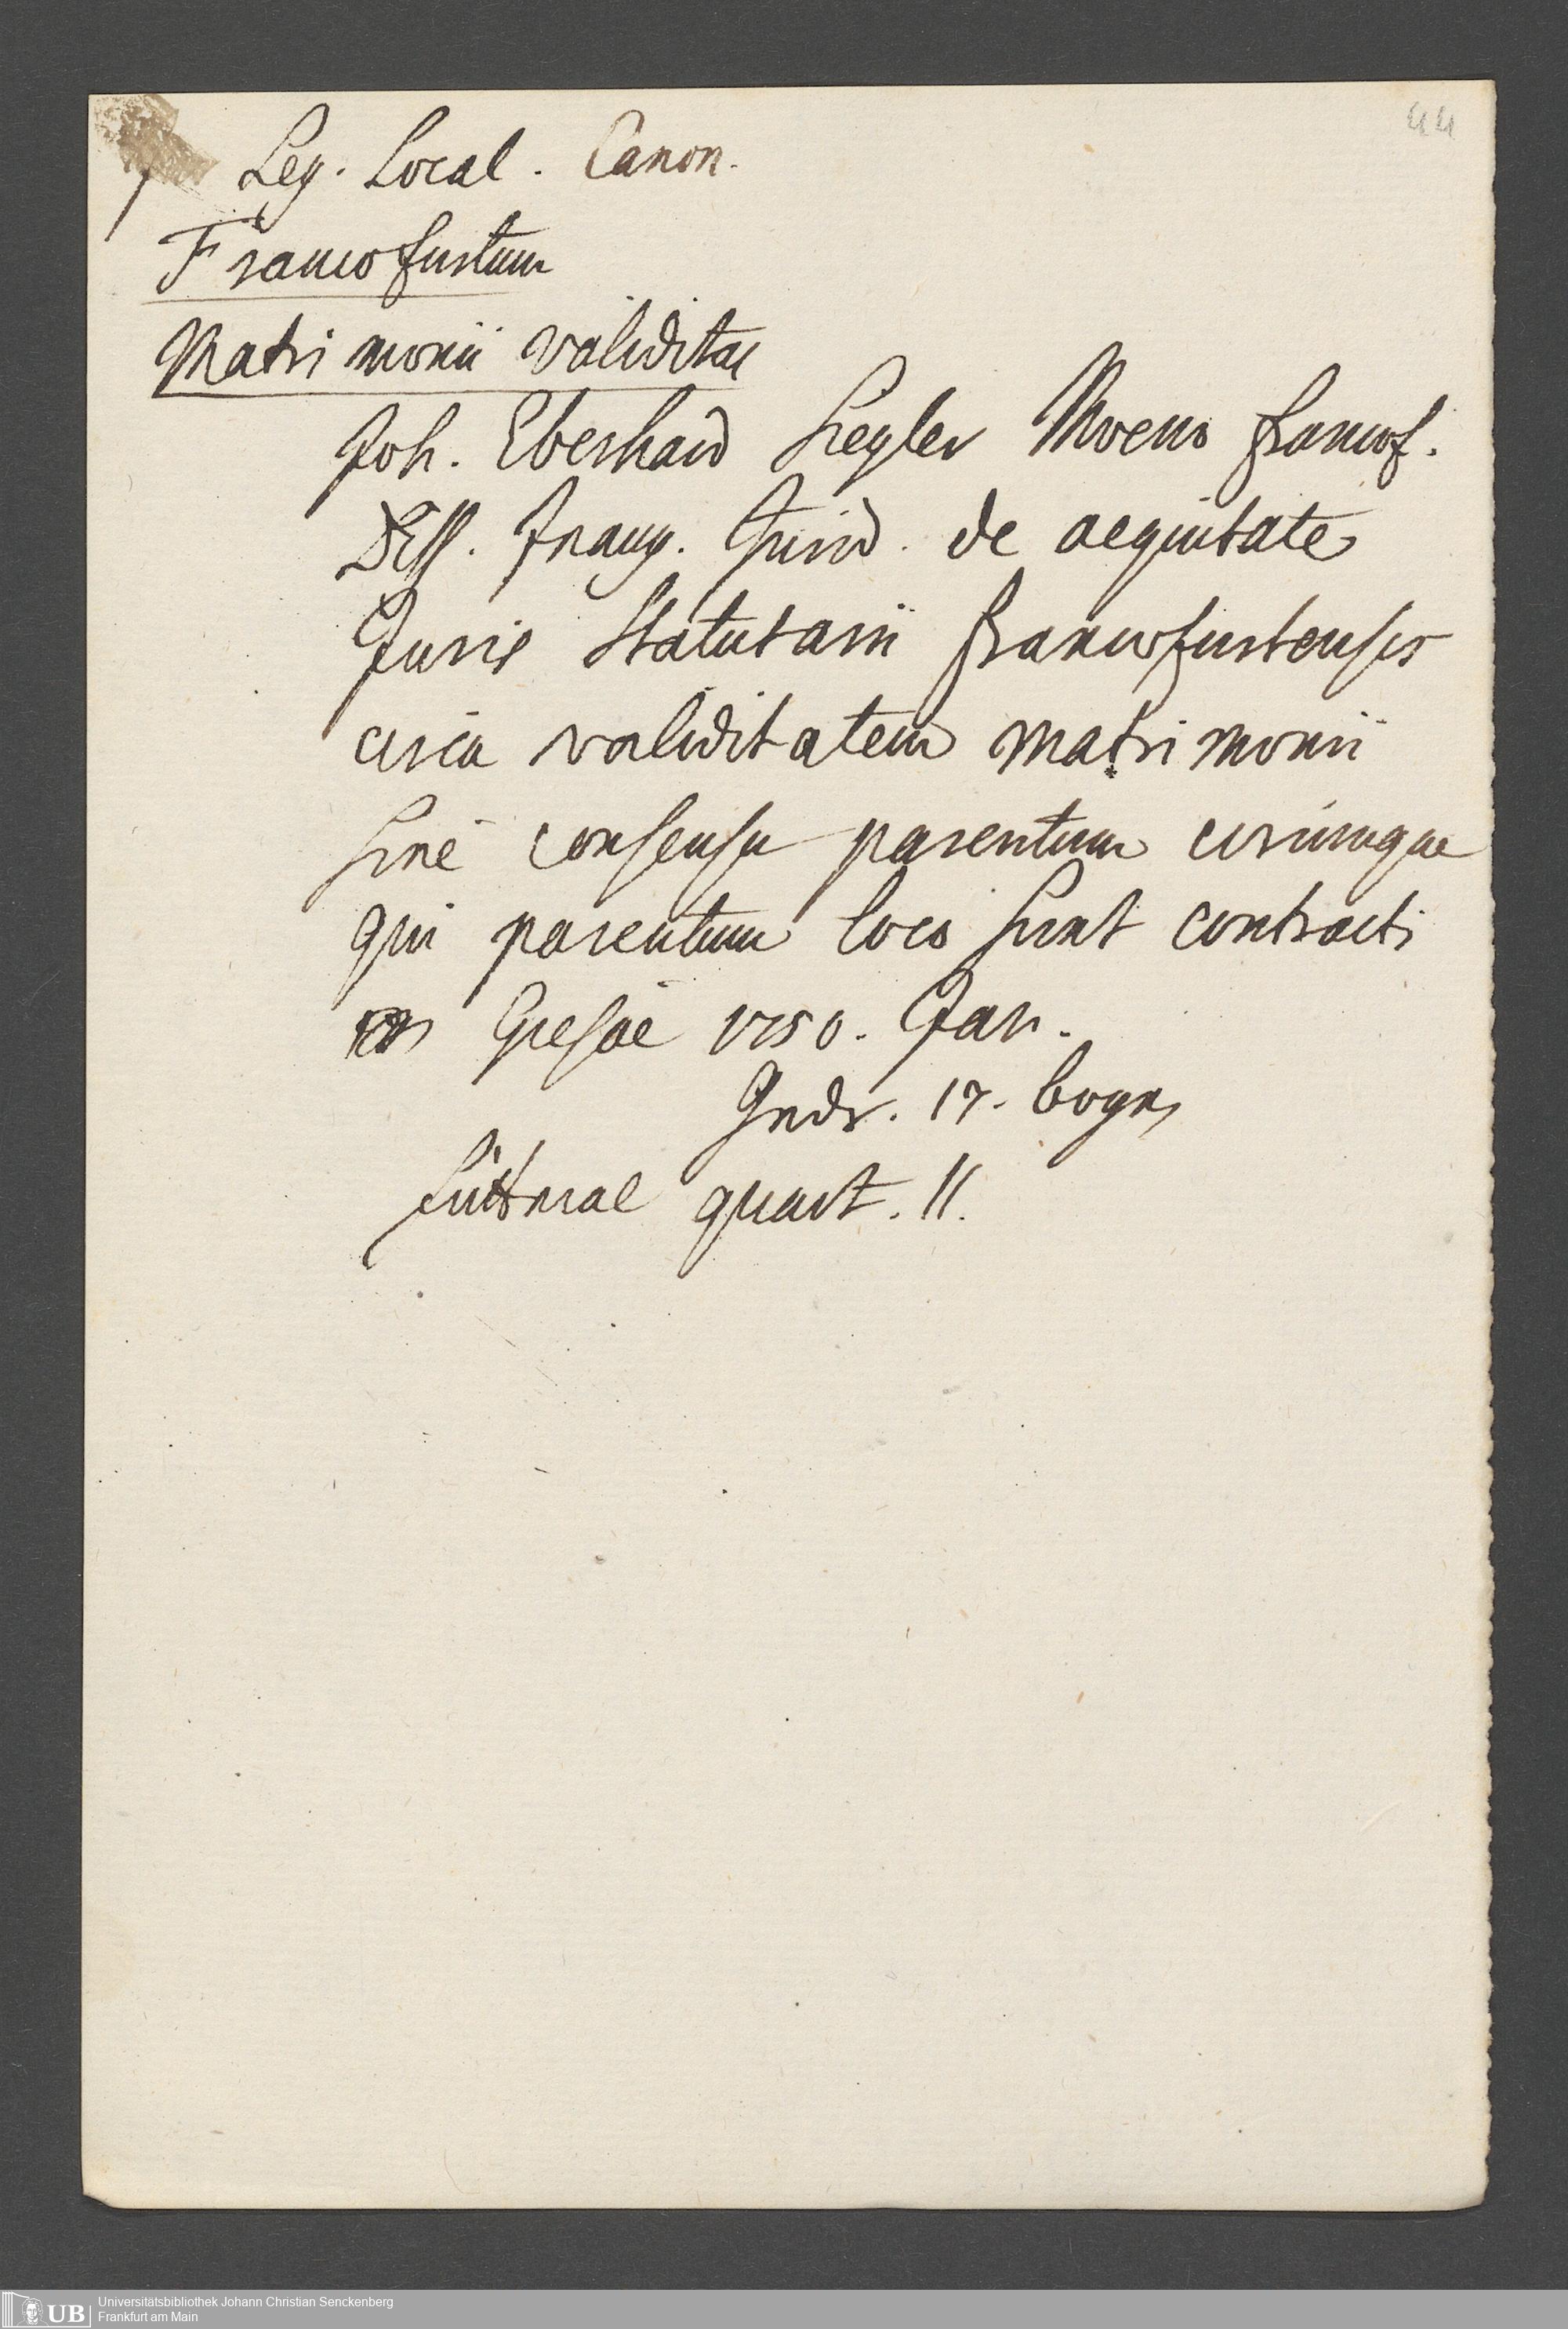 44
Leg. Local. Canon.
Francofurtum
Matrimonii validitas
Joh. Eberhard Siegler Moeno francof.
Diss. Inaug. Jurid. de aequitate
Juris Statutarii francofurtensis
circa validitatem matrimonii
sine consensu parentum eorumque
qui parentum loco sunt contracti
Giesae 1750. Jan.
17. bogn
quart. 11.
UB Universitätsbibliothek Johann Christian Senckenberg
Frankfurt am Main